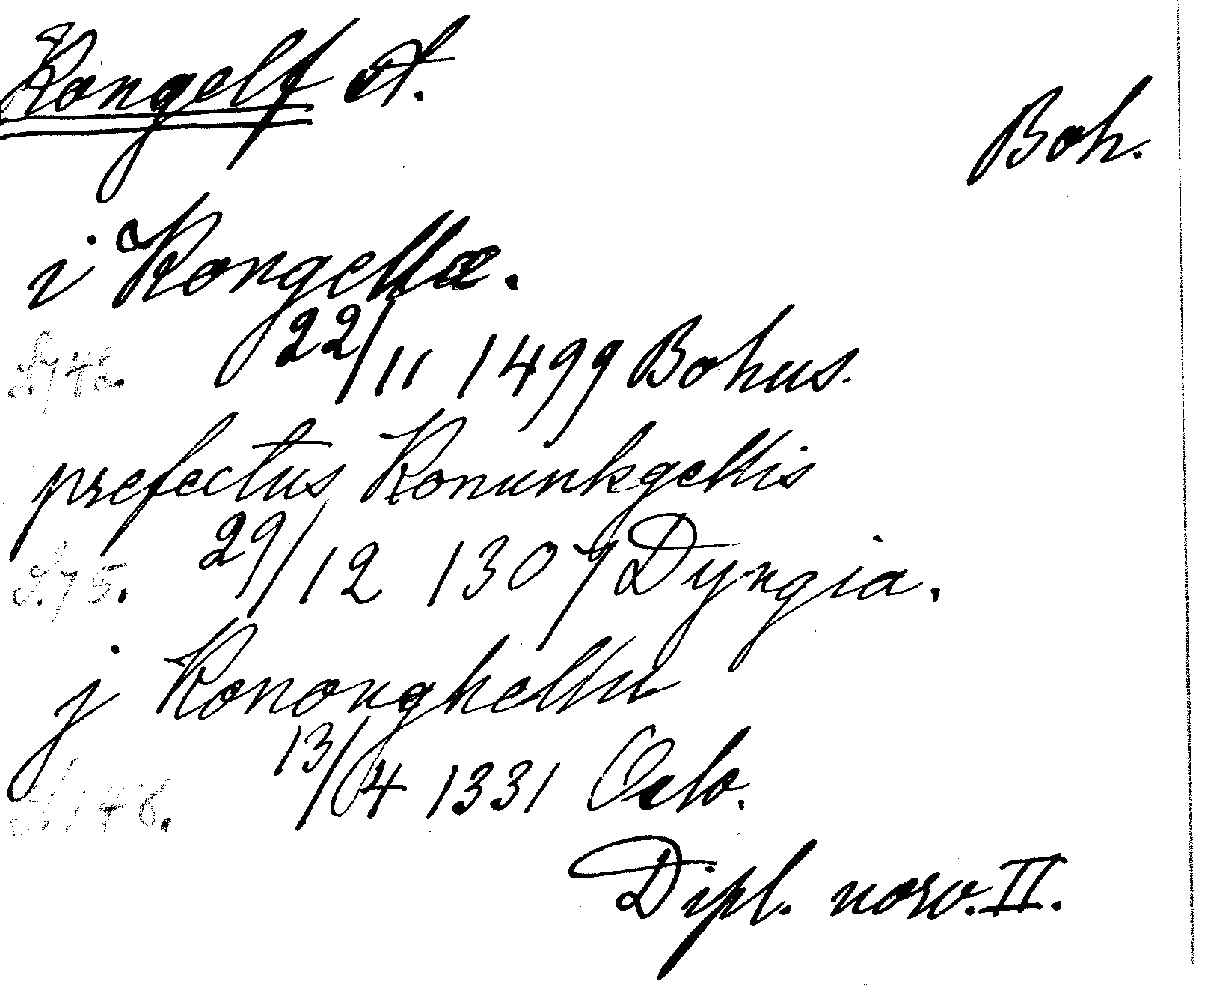 Kongelf St.
Boh.
i Kongellæ.
22/11 1499 Bohus.
prefectus Konunkgellis
S. 75. 29/12 1307 Dyngia.
j Kononghellu
S. 148. 13/4 1331 Oslo.
Dipl. norv. II.